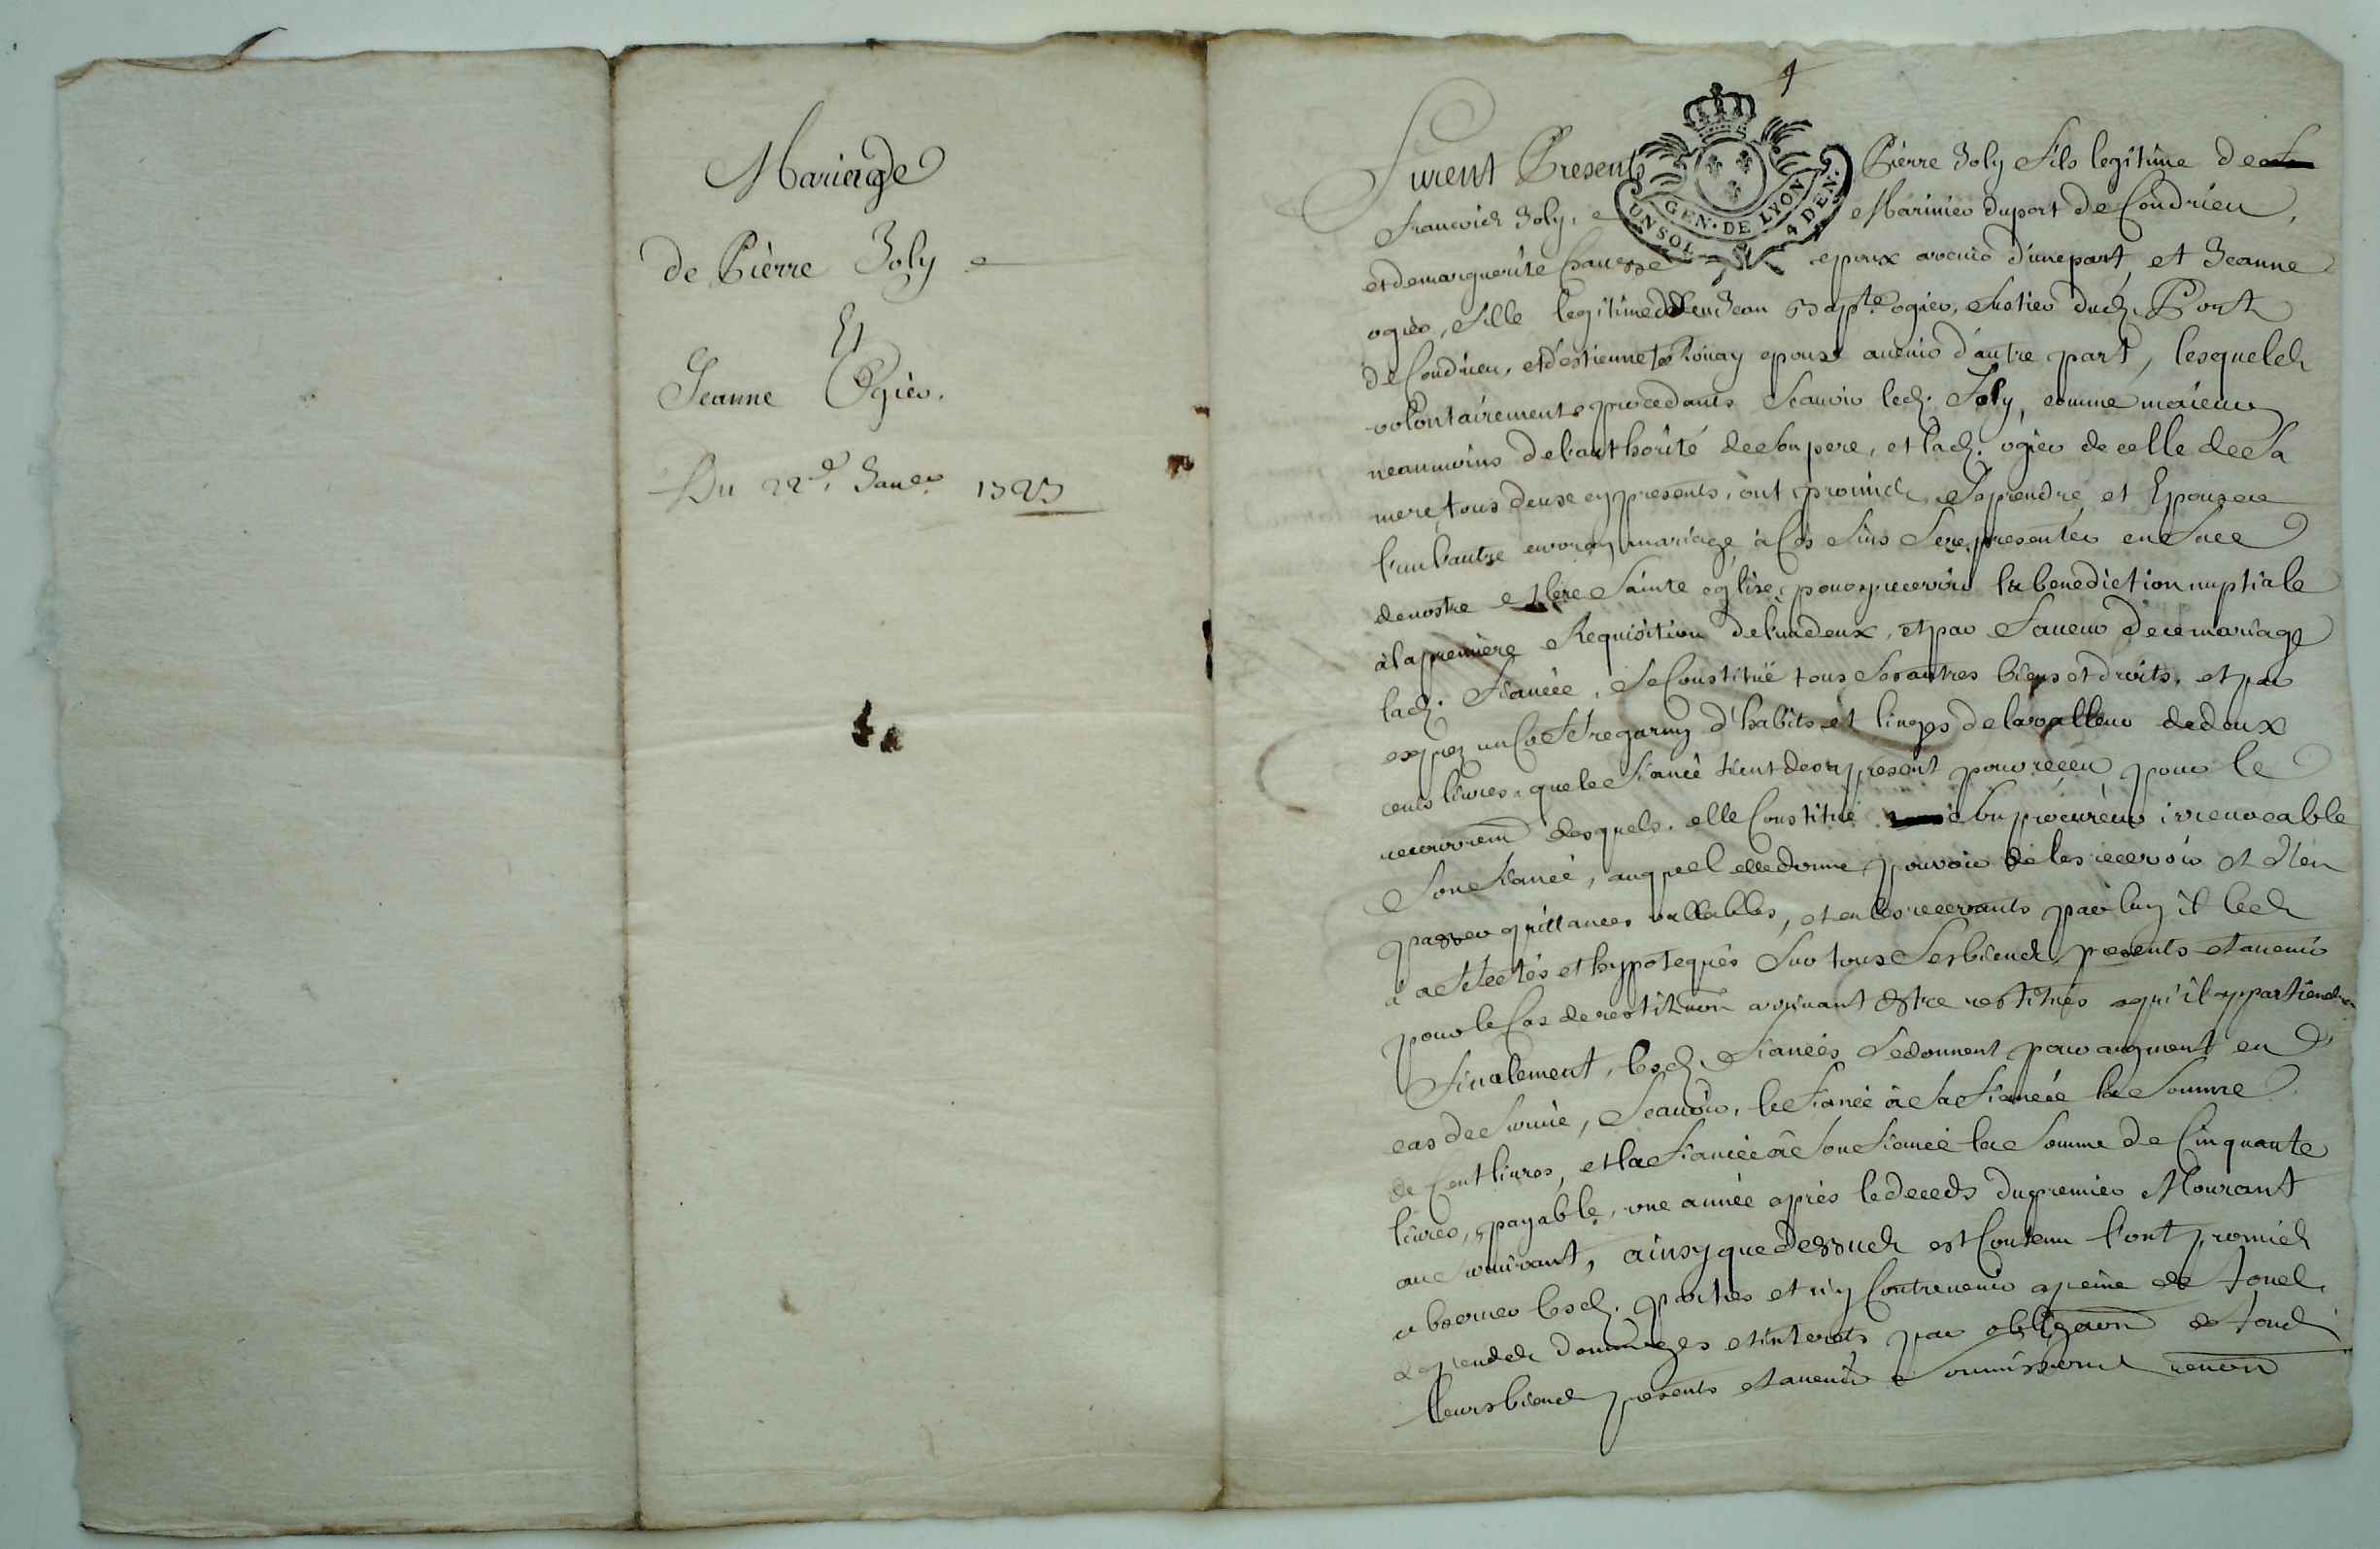 Mariage
de Pièrre Joly
Et
Jeanne Ogier.
Du 22e. Janer. 1727
Furent Presents Pièrre Joly fils legitime de
francois Joly, Marinier du port de Condrieu,
et de marguerite epoux avenir d'une part, et Jeanne
ogier, fille legitime de feu Jean Bapte. ogier, dud. Port
de Condrieu, et d'estiennete epouse avenir d'autre part, lesquels
volontairement procedants scauoir led. Joly, comme maieur
neanmoins de l'authorité de son pere, et lad. ogier de celle de sa
mere, tous deux cy presents, ont promis se prendre et Epouser
l'un l'autre en vray mariage, à Ces fins se representer en face
de nostre Mere Sainte eglise, pour y recevoir la benediction nuptiale
à la premiere Requisition de l'un deux, et par faueur de ce mariage
lad. fiancée, se Constitue tous ses autres biens et droits, et par
exprez un Coffre garny d'habits et linges de la valleur de deux
cents livres, que le fiancé tient des a present pour receu, pour le
recouvrem desquels, elle Constitue son procureur irreuocable
son fiancé, auquel elle donne pouvoir de les recevoir et d'en
passer quittances vallables, et en les recevants par luy il les
a affectés et hypotequés sur tous ses biens presents et avenir
pour le Cas de restitution arrivant Estre restitués a qu'il appartiendra
Finalement, lesd. fiancés se donnent pour augment en
cas de survie, Scauoir, le fiancé à sa fiancée la somme
de Cent livres, et la fiancée à son fiancé la somme de Cinquante
livres, payable, une année après le deceds du premier Mourant
au survivant, ainsy que dessus est Contenu l'ont promis
obserer lesd. parties et n'y Contreuenir a peine de tous
despends dommages et interets par obligaon de tous
leurs biens presents et auenir soumissions renon
GEN. DE LYON
UN SOL 4 DEN.